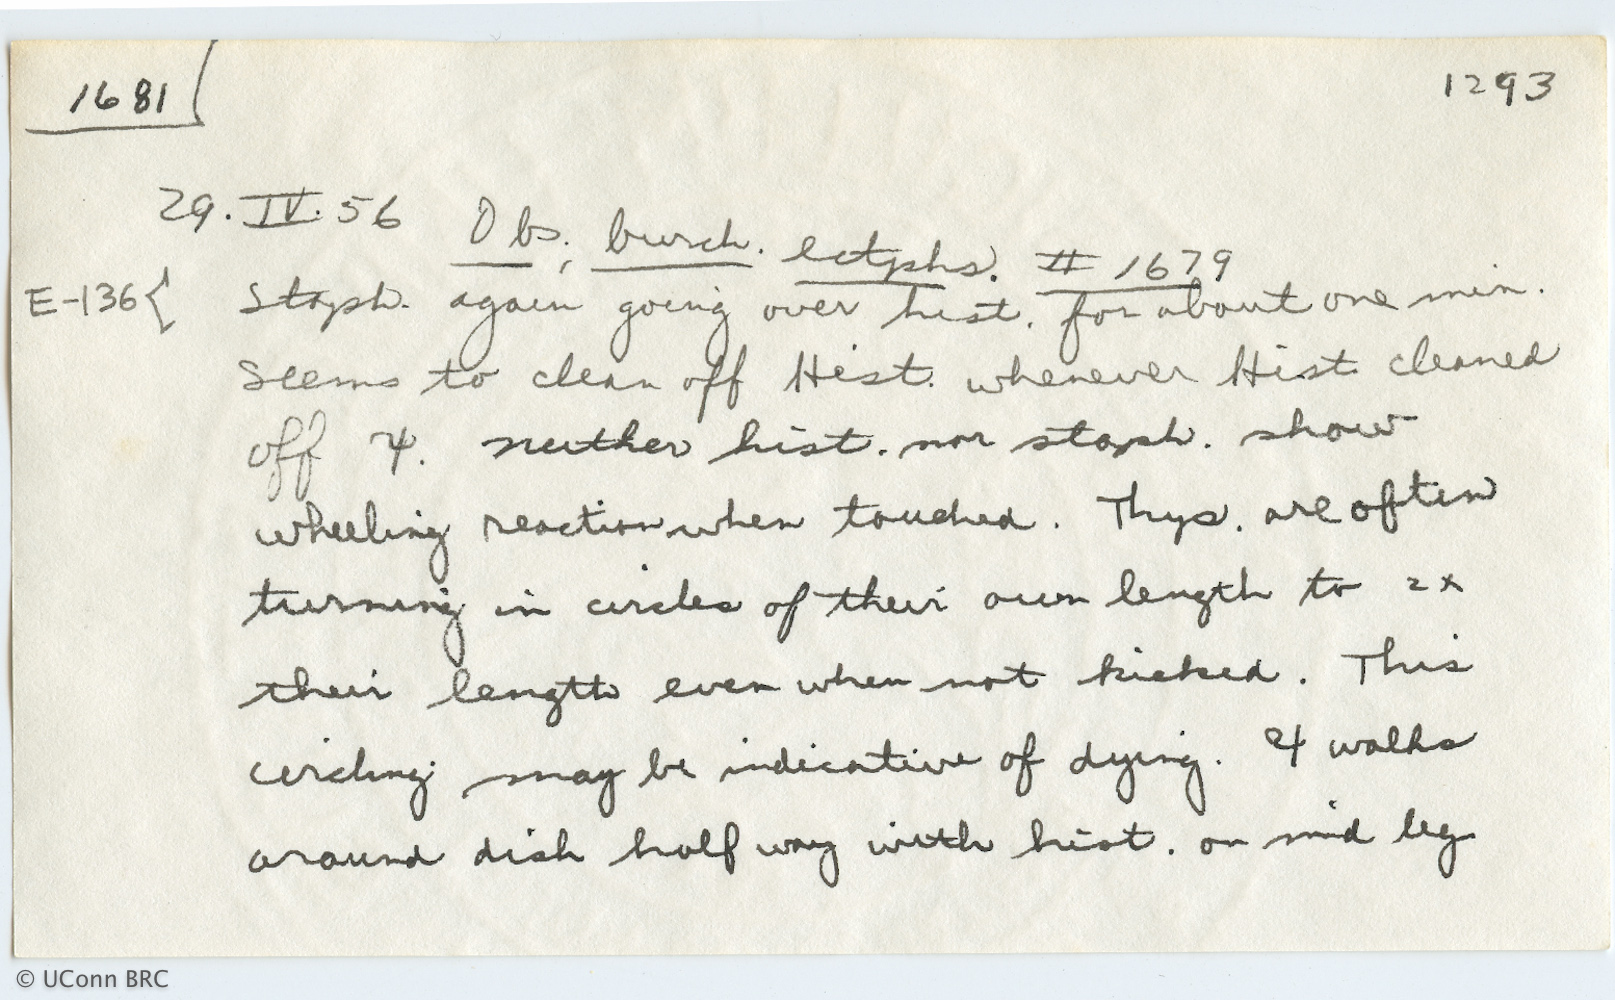 1681
1293
29.IV.56 Obs., burch. ectphs. # 1679
E-136{ Staph. again going over hist. for about one min.
Seems to clean off Hist. whenever Hist cleaned
off 4. neither hist. nor staph. show
wheeling reaction when touched. Thys. are often
turning in circles of their own length to 2x
their length even when not kicked. This
circling may be indicative of dying. walks
around dish half way with hist. on mid leg
© UConn BRC